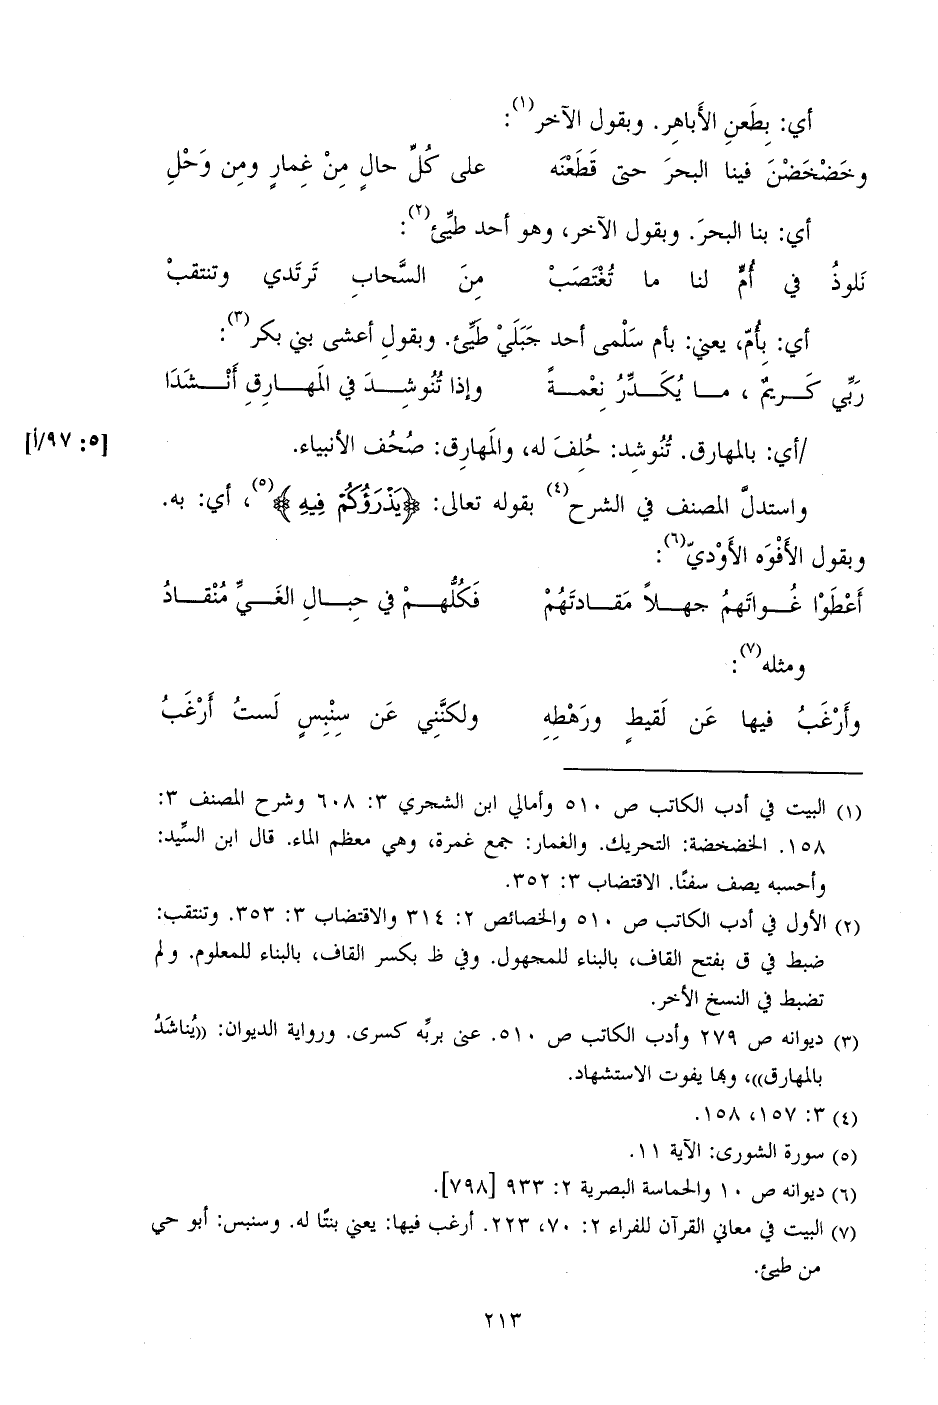 أي: بِطَعنِ الأَباهِرِ. وبقول الآخر(١):
وخَضْخَضْنَ فينا البحرَ حتى قَطَعْنَه على كُلِّ حالٍ مِنْ غِمارٍ ومِن وَحْلِ
أي: بنا البحرَ. وبقول الآخر، وهو أحد طيِّئ(٢):
نَلوذُ في أُمٍّ لنا ما تُغْتَصَبْ مِنَ السَّحابِ تَرتَدي وتنتقبْ
أي: بِأُمّ، يعني: بأم سَلْمى أحد جَبَلَيْ طَيِّئ. وبقول أعشى بني بكر(٣):
رَبِّي كَـريمٌ ، مـا يُكَـدِّرُ نِعْمـةً وإذا تُنُوشِـدَ في المَهـارِقِ أَنْـشَدَا
/أي: بالمهارق. تُنُوشِد: حُلِفَ له، والمَهارِق: صُحُف الأنبياء.
[٥: ٩٧/أ]
واستدلَّ المصنف في الشرح(٤) بقوله تعالى: ﴿يَذْرَؤُكُمْ فِيهِ﴾(٥)، أي: به.
وبقول الأَفْوَه الأَوْديّ(٦):
أَعْطَوْا غُـواتَهمُ جهـلاً مَقـادتَهُمْ فَكُلُّهـمْ في حِبـالِ الغَـيِّ مُنْقـادُ
ومثله(٧):
وأَرْغَبُ فيها عَن لَقيطٍ ورَهْطِهِ ولكنَّنِي عَن سِنْبِسٍ لَستُ أَرْغَبُ
(١) البيت في أدب الكاتب ص ٥١٠ وأمالي ابن الشجري ٣: ٦٠٨ وشرح المصنف ٣:
١٥٨. الخضخضة: التحريك. والغمار: جمع غمرة، وهي معظم الماء. قال ابن السِّيد:
وأحسبه يصف سفنًا. الاقتضاب ٣: ٣٥٢.
(٢) الأول في أدب الكاتب ص ٥١٠ والخصائص ٢: ٣١٤ والاقتضاب ٣: ٣٥٣. وتنتقب:
ضبط في ق بفتح القاف، بالبناء للمجهول. وفي ظ بكسر القاف، بالبناء للمعلوم. ولم
تضبط في النسخ الأخر.
(٣) ديوانه ص ٢٧٩ وأدب الكاتب ص ٥١٠. عنى بربِّه كسرى. ورواية الديوان: ((يُناشَدُ
بالمهارق))، وبها يفوت الاستشهاد.
(٤) ٣: ١٥٧، ١٥٨.
(٥) سورة الشورى: الآية ١١.
(٦) ديوانه ص ١٠ والحماسة البصرية ٢: ٩٣٣ [٧٩٨].
(٧) البيت في معاني القرآن للفراء ٢: ٧٠، ٢٢٣. أرغب فيها: يعني بنتًا له. وسنبس: أبو حي
من طيئ.
٢١٣